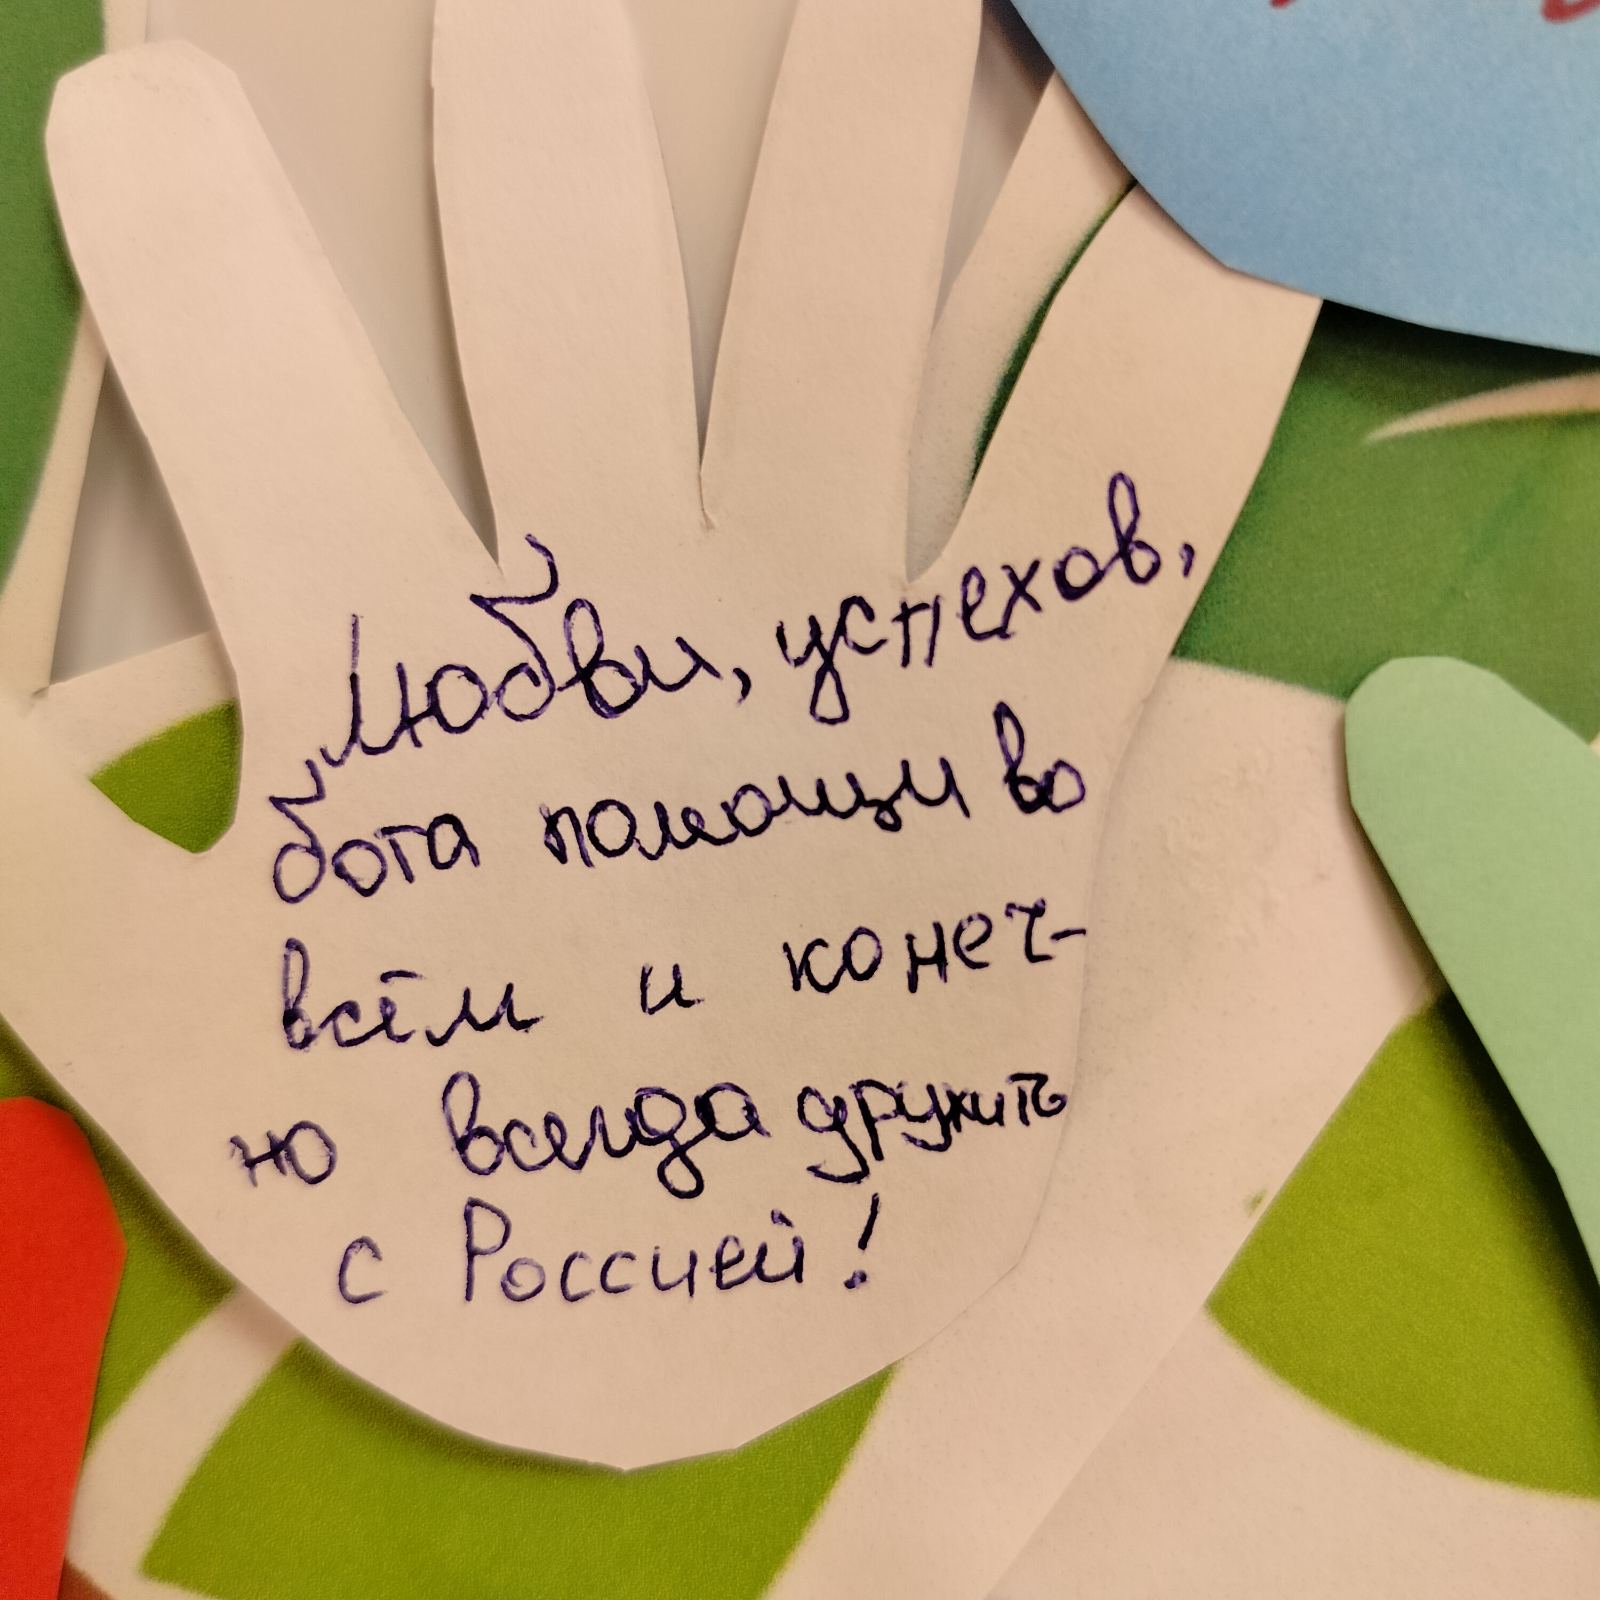 Любви, успехов,
бога помощи во
всём и конеч-
но всегда дружить
с Россией!